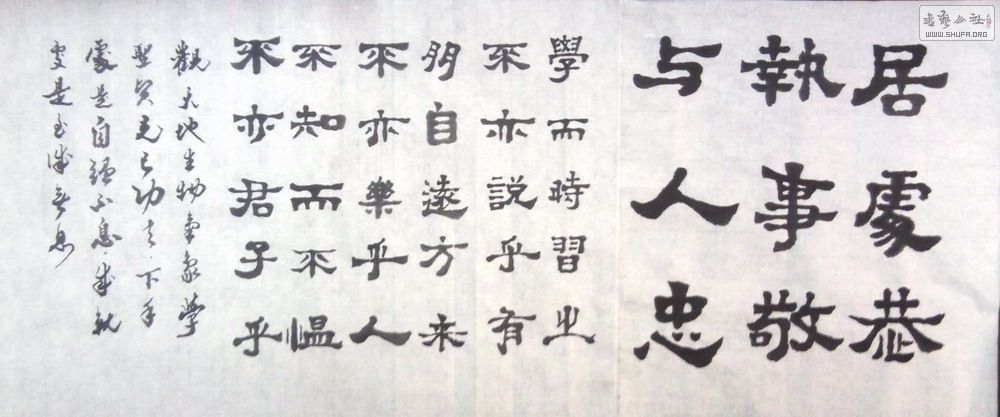 居處恭
執事敬
与人忠
學而時習之
不亦説乎有
朋自遠方来
不亦樂乎人
不知而不愠
不亦君子乎
觀天地生物氣象學
聖賢克己功夫下手
處是自强不息成就
處是至誠无息
书艺公社
WWW.SHUFA.ORG